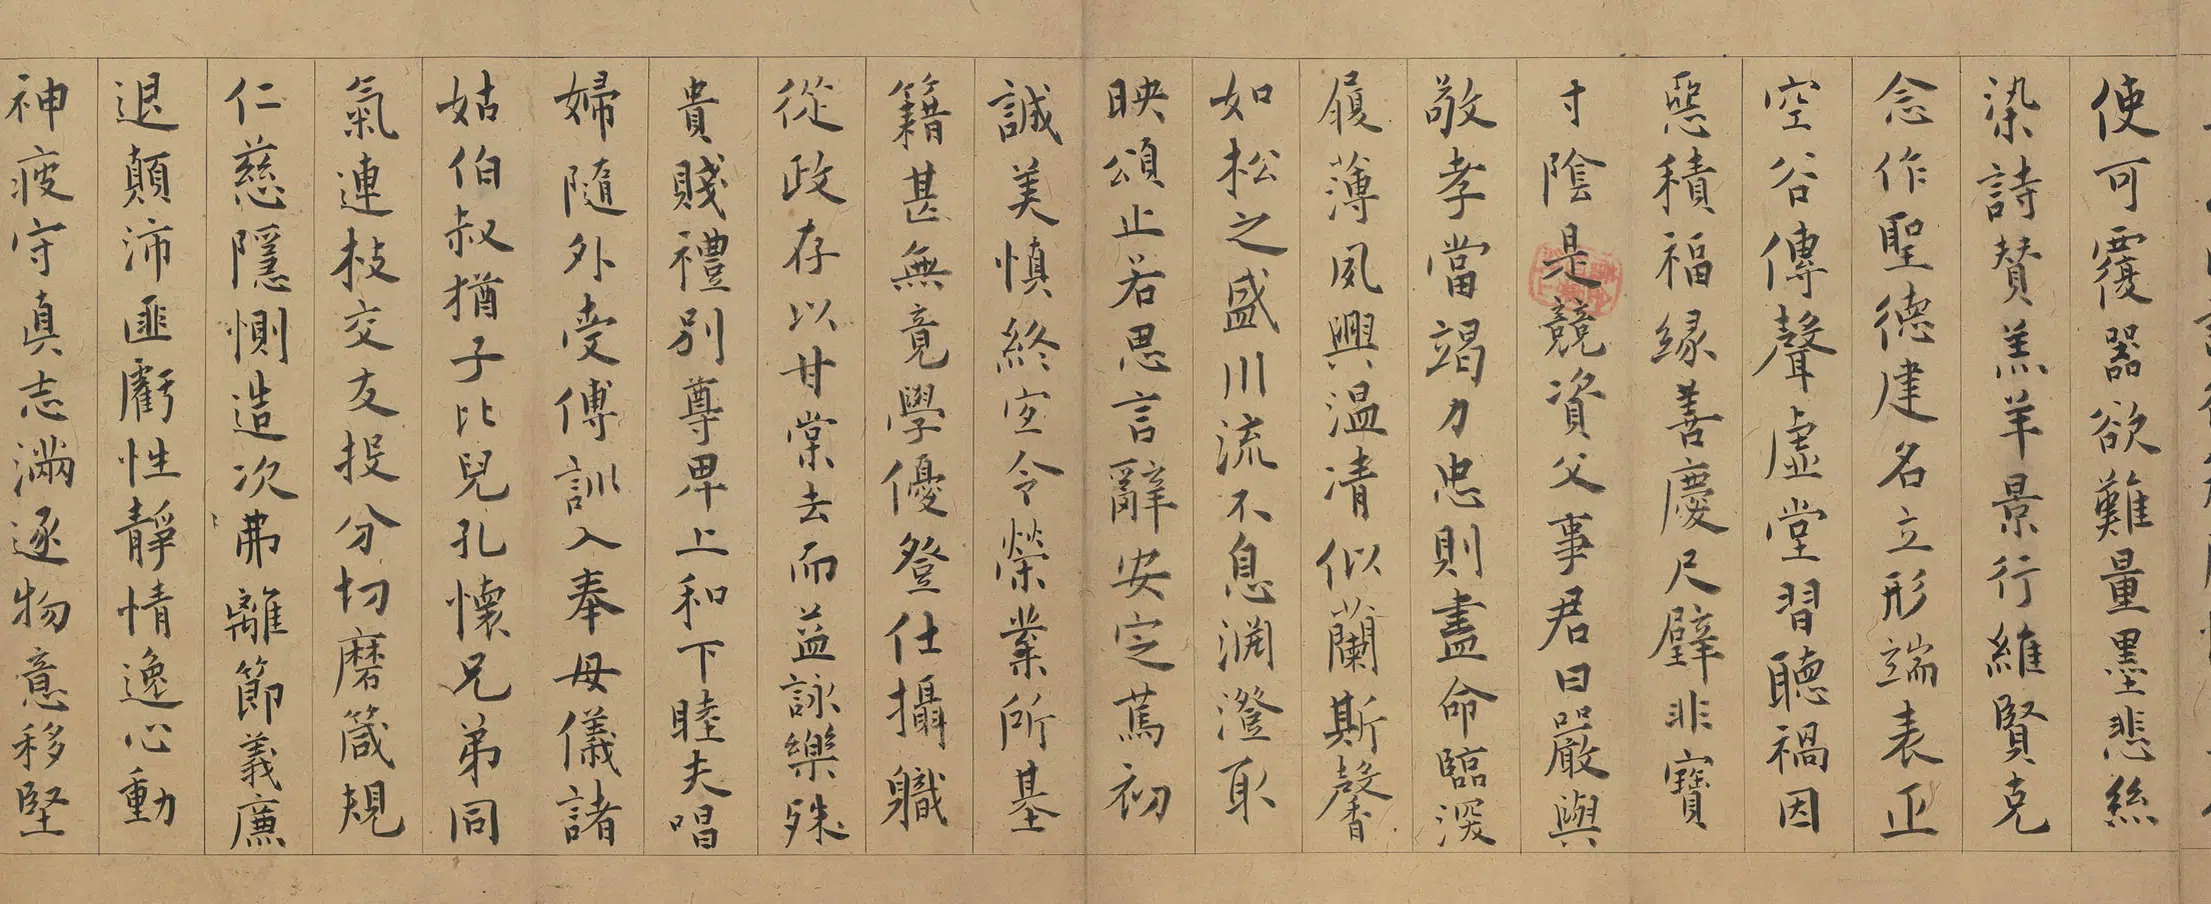 使可覆器欲難量墨悲絲
染詩賛羔羊景行維賢克
念作聖德建名立形端表正
空谷傳聲虛堂習聽禍因
惡積福緣善慶尺璧非寶
寸陰是競資父事君曰嚴與
敬孝當竭力忠則盡命臨深
履薄夙興溫凊似蘭斯馨
如松之盛川流不息淵澄取
映頌止若思言辭安定篤初
誠美慎終宜令榮業所基
籍甚無竟學優登仕攝職
從政存以甘棠去而益詠樂殊
貴賤禮別尊卑上和下睦夫唱
婦隨外受傅訓入奉母儀諸
姑伯叔猶子比兒孔懷兄弟同
氣連枝交友投分切磨箴規
仁慈隱惻造次弗離節義廉
退顛沛匪虧性靜情逸心動
神疲守真志滿逐物意移堅